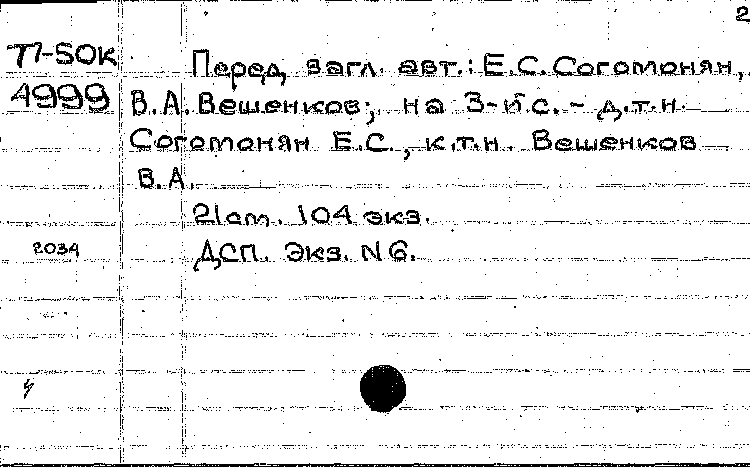 2
Т7-50К Перед загл. авт.: Е.С.Согомонян,
4999 В.А.Вешенков; на 3-й с. - д.т.н.
Согомонян Е.С., к.т.н. Вешенков
В.А.
104 экз.
2034 ДСП. Экз. N 6.